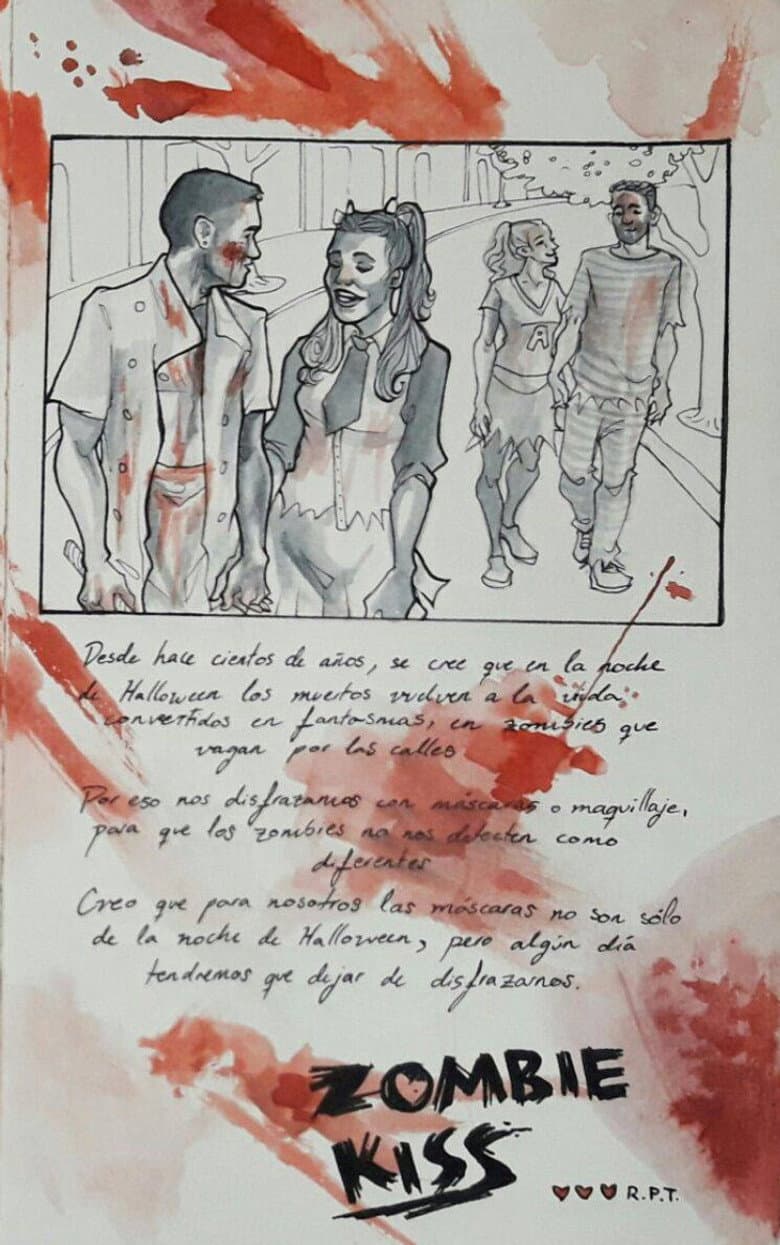 Desde hace cientos de años, se cree que en la noche
de Halloween los muertos vuelven a la vida
convertidos en fantasmas, en zombies que
vagan por las calles
Por eso nos disfrazamos con máscaras o maquillaje,
para que los zombies no nos detecten como
diferentes
Creo que para nosotros las máscaras no son sólo
de la noche de Halloween, pero algún día
tendremos que dejar de disfrazarnos.
A
ZOMBIE
KISS
R.P.T.